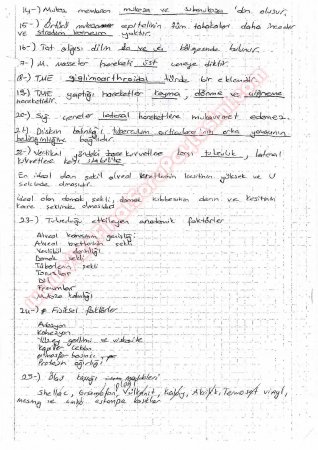 14-) Mukoz membran mukoza ve submukoza 'dan oluşur.
15-) Örtücü mukoza epitelinin tüm tabakaları daha incedir
ve stratum korneum yoktur.
16-) Tat algısı dilin ve bölgesinde bulunur.
17-) M. masseter hareketi üst çeneye diktir.
18-) TME ginglimoarthroidal türde bir eklemdir.
19-) TME yaptığı hareketler kayma, dönme ve
hareketidir.
20-) Sığ çeneler lateral hareketlere mukavemet edemez.
21-) Diskin balıklığı, tuberculum articulare'nin arka yamacının
bağlıdır.
22-) Vertikal yöndeki kuvvetlere karşı tutuculuk, lateral
kuvvetlere karşı stabilite
En ideal olan şekil alveol kretlerinin kesitinin yüksek ve U
şeklinde olmasıdır.
İdeal olan damak şekli; damak kubbesinin derin ve kesitinin
kare şeklinde olmasıdır.
23-) Tutuculuğu etkileyen anatomik faktörler
Alveol kavsinin genişliği
Alveol kretlerinin şekli
Vestibül derinliği
Damak şekli
Tüberlerin şekli
Toruslar
Dil
Frenumlar
Mukoza kalınlığı
24-) Fiziksel faktörler
Adezyon
Kohezyon
Yüzey gerilimi ve vizkozite
Kapiller çekim
Atmosfer basıncı
Protezin ağırlığı
25-) Ölçü kaşığı
Shellac, Vulkanit, Kalay, Akrilik, Termoset vinyl,